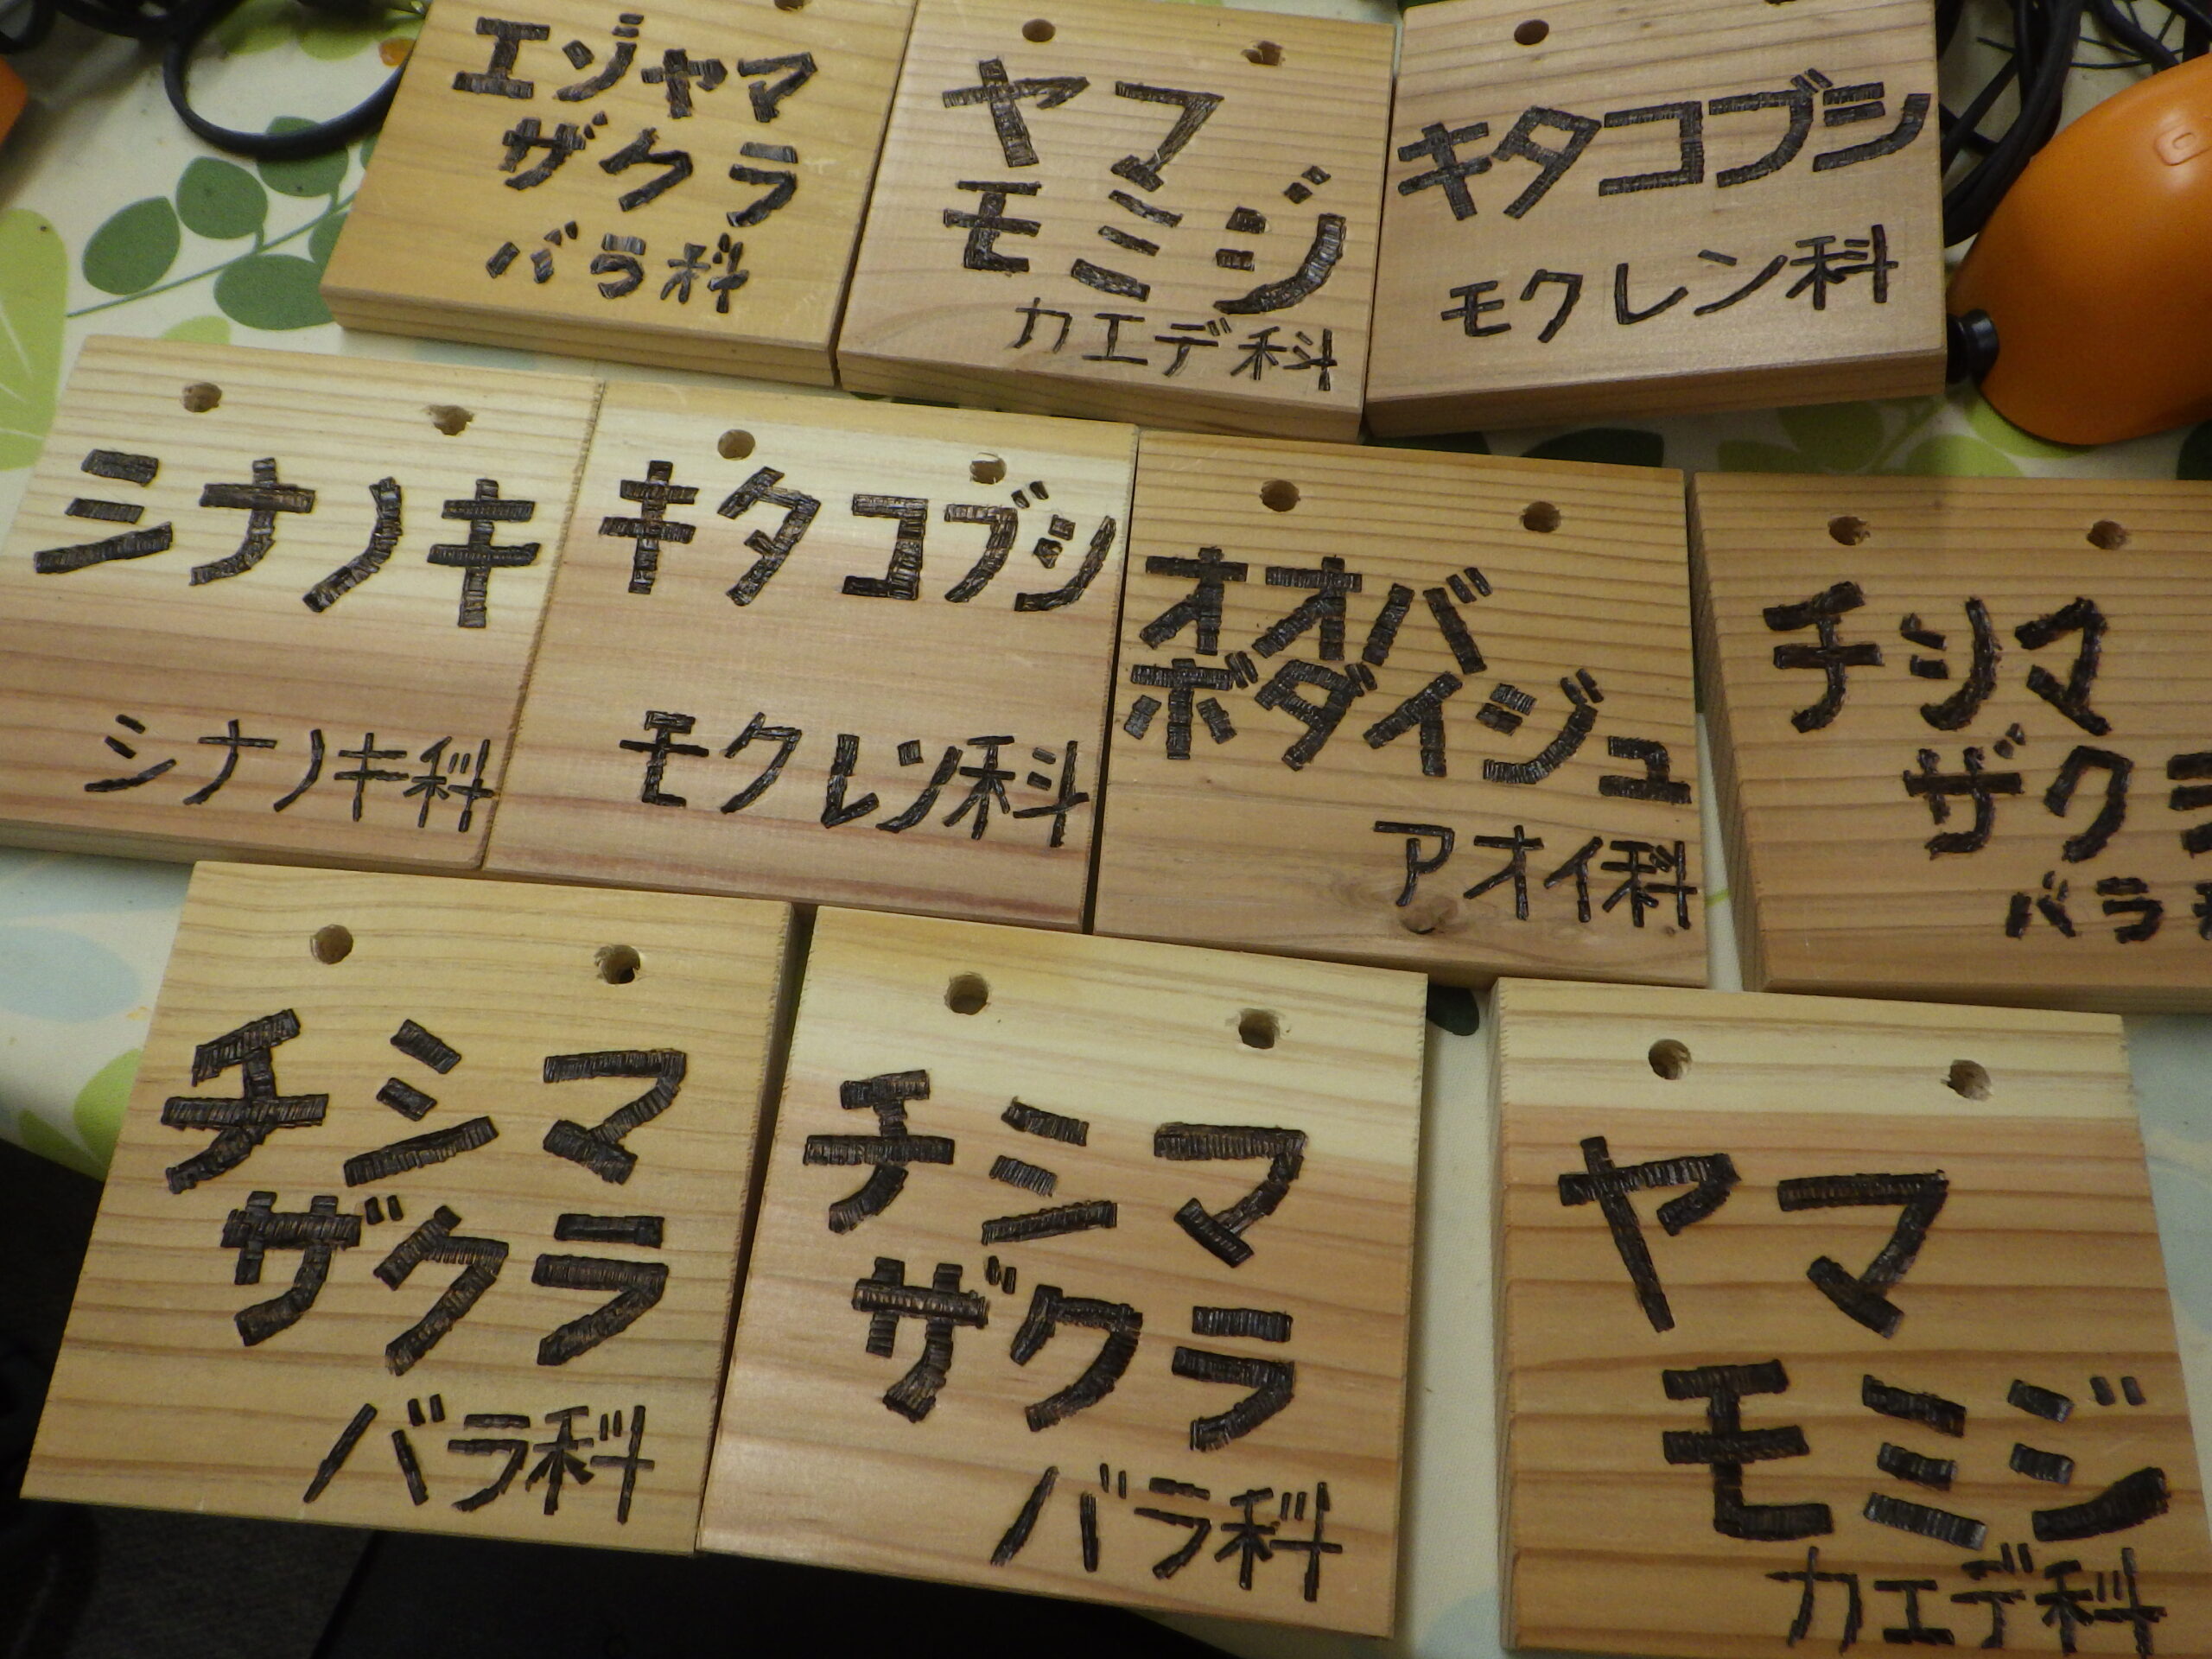 エゾヤマ
ザクラ
バラ科
ヤマ
モミジ
カエデ科
キタコブシ
モクレン科
シナノキ
シナノキ科
キタコブシ
モクレン科
オオバ
ボダイジュ
アオイ科
チシマ
ザクラ
バラ科
チシマ
ザクラ
バラ科
チシマ
ザクラ
バラ科
ヤマ
モミジ
カエデ科